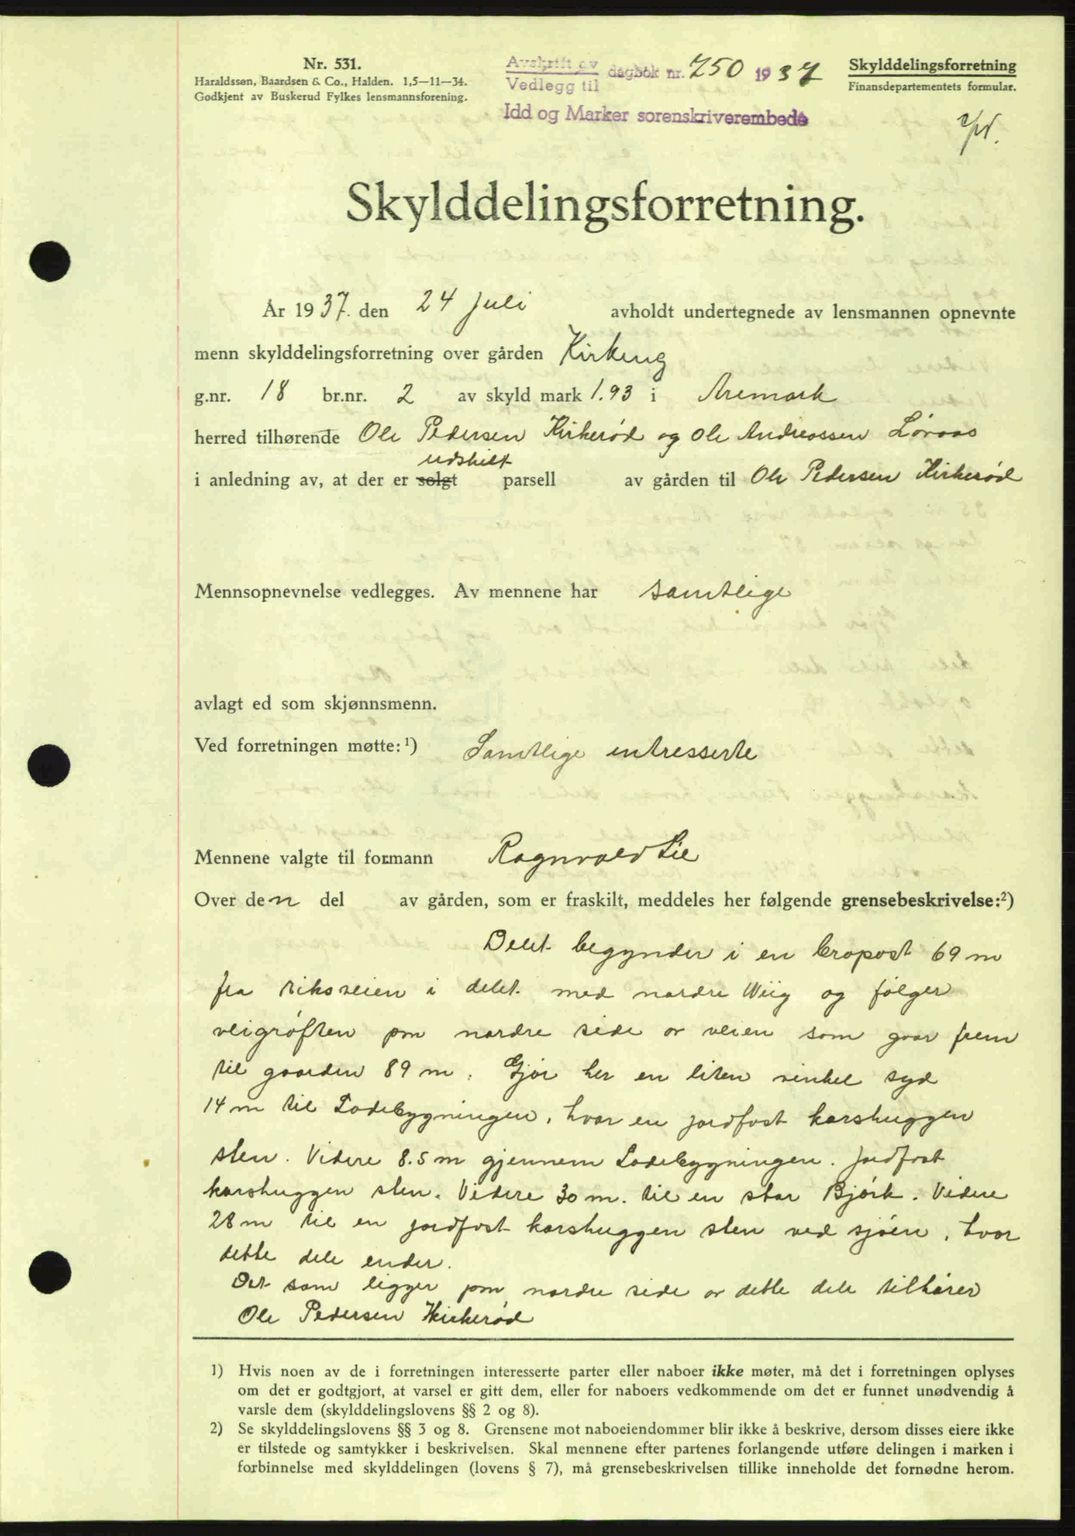 Nr. 531.
Haraldssøn, Baardsen & Co., Halden. 1,5—11—34.
Godkjent av Buskerud Fylkes lensmannsforening.
Avskrift av
Vedlegg til
dagbok nr. 750 1937
Idd og Marker sorenskriverembede
Skylddelingsforretning
Finansdepartementets formular.
Skylddelingsforretning.
År 1937. den 24 juli avholdt undertegnede av lensmannen opnevnte
menn skylddelingsforretning over gården Kirkeng
g.nr. 18 br.nr. 2 av skyld mark 1.93 i Aremark
herred tilhørende Ole Pedersen Kirkerød og Ole Andreassen Løvaas
udskilt
i anledning av, at der er solgt parsell av gården til Ole Pedersen Kirkerød
Mennsopnevnelse vedlegges. Av mennene har samtlige
avlagt ed som skjønnsmenn.
Ved forretningen møtte: 1) Samtlige intresserte
Mennene valgte til formann Ragnvald Lie
Over den del av gården, som er fraskilt, meddeles her følgende grensebeskrivelse:2)
Delet begynder i en bropost 69 m
fra riksveien i delet med nordre Wiig og følger
veigrøften paa nordre side av veien som gaar frem
til gaarden 89 m. Gjør her en liten vinkel syd
14 m til Ladebygningen, hvor en jordfast korshuggen
sten. Videre 8.5 m gjennem Ladebygningen. Jordfast
korshuggen sten. Videre 30 m. til en stor Bjørk. Videre
28 m til en jordfast korshuggen sten ved sjøen, hvor
dette dele ender.
Det som ligger paa nordre side av dette dele tilhører
Ole Pedersen Kirkerød
1) Hvis noen av de i forretningen interesserte parter eller naboer ikke møter, må det i forretningen oplyses
om det er godtgjort, at varsel er gitt dem, eller for naboers vedkommende om det er funnet unødvendig å
varsle dem (skylddelingslovens §§ 2 og 8).
2) Se skylddelingslovens §§ 3 og 8. Grensene mot naboeiendommer blir ikke å beskrive, dersom disses eiere ikke
er tilstede og samtykker i beskrivelsen. Skal mennene efter partenes forlangende utføre delingen i marken i
forbinnelse med skylddelingen (lovens § 7), må grensebeskrivelsen tillike inneholde det fornødne herom.